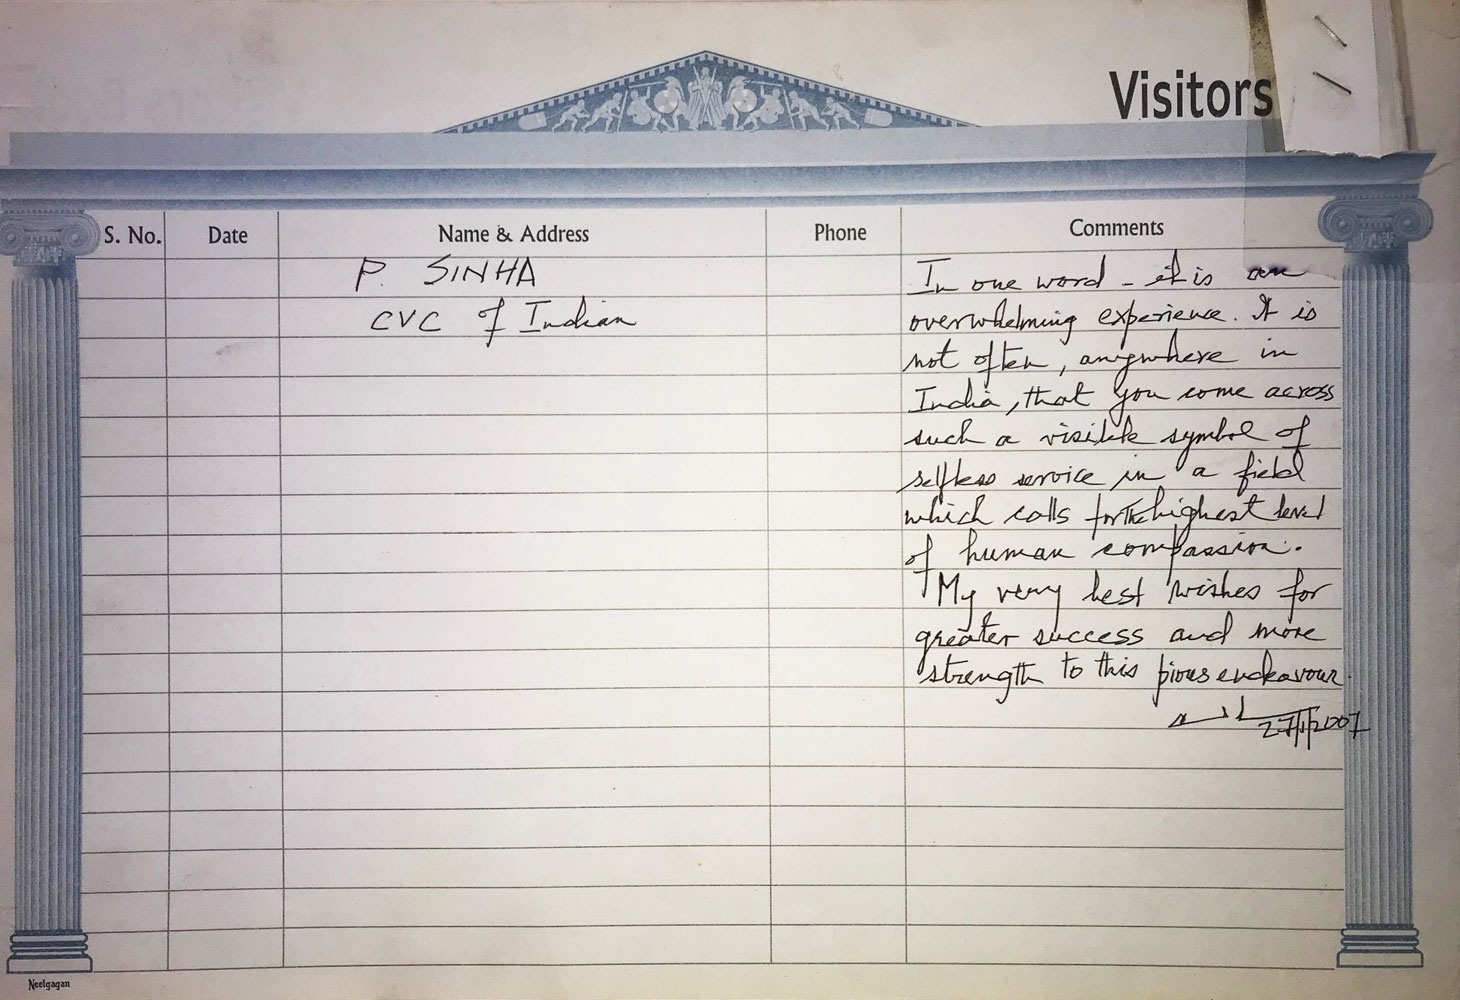 Visitors
S. No. Date Name & Address Phone Comments
P. SINHA
CVC of Indian
In one word - it is an
overwhelming experience. It is
not often, anywhere in
India, that you come across
such a visible symbol of
selfless service in a field
which calls for the highest level
of human compassion.
My very best wishes for
greater success and more
strength to this pious endeavour.
27/1/2007
Neelgagan